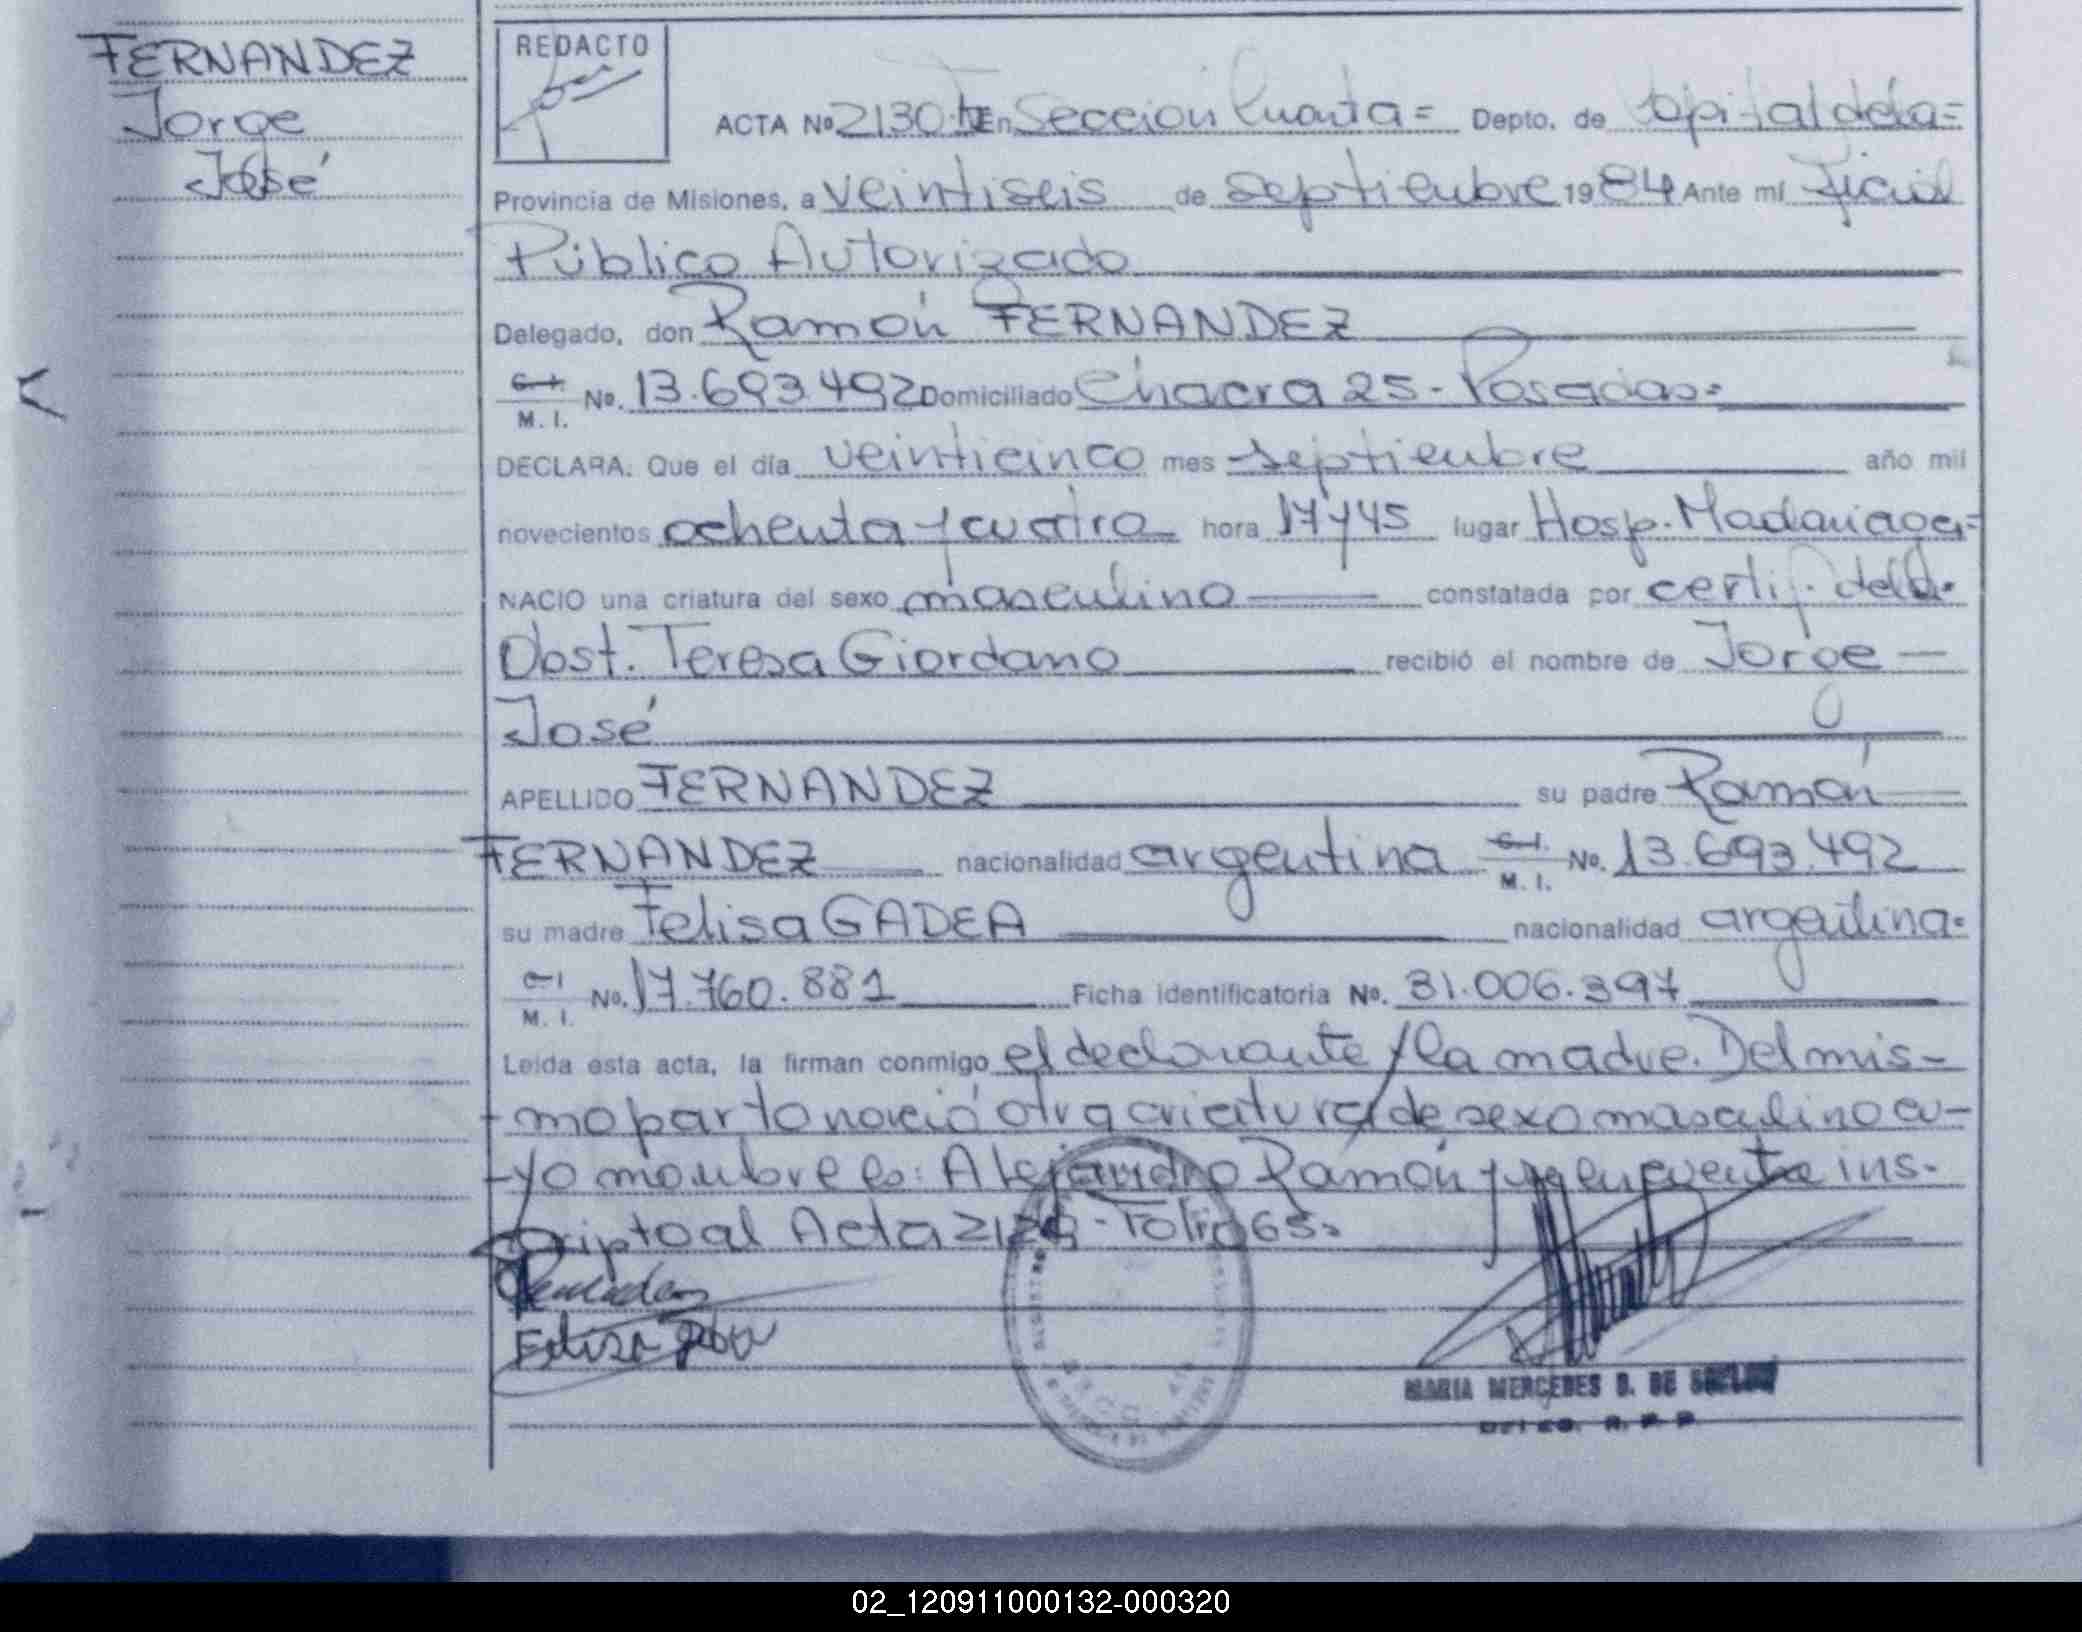 FERNANDEZ
Jorge
José
REDACTO
ACTA No 2130.- En Seccion Cuarta= Depto. de Capital de la=
Provincia de Misiones, a veintiseis de septiembre 1984 Ante mí
Público Autorizado
Delegado, don Ramón FERNANDEZ
C. I.
M. I. No. 13.693.492 Domiciliado Chacra 25- Posadas=
DECLARA: Que el día veinticinco mes septiembre año mil
novecientos ochenta y cuatro hora 17y45 lugar Hosp. Madariaga=
NACIO una criatura del sexo masculino constatada por certif. de la
Obst. Teresa Giordano recibió el nombre de Jorge
José
APELLIDO FERNANDEZ su padre Ramón
FERNANDEZ nacionalidad argentina C. I.
M. I. No. 13.693.492
su madre Felisa GADEA nacionalidad argentina.
C. I.
M. I. No. 17.760.881 Ficha identificatoria No. 31.006.397
Leída esta acta, la firman conmigo el declarante y la madre. Del mis-
-mo parto nació otra criatura de sexo masculino cu-
-yo nombre es: Alejandro Ramón y se encuentra ins-
cripto al Acta - Folio 65.
MARIA MERCEDES B. DE
02_120911000132-000320